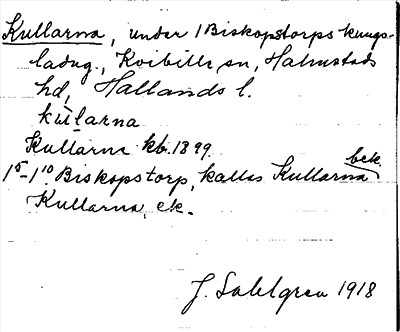 Kullarna, under 1 Biskopstorps kungs-
ladug., Kvibille sn, Halmstads
hd, Hallands l.
kularna
Kullarne kb. 1899.
15-110 Biskopstorp, kallas Kullarna bek.
Kullarna, ek.
J. Sahlgren 1918